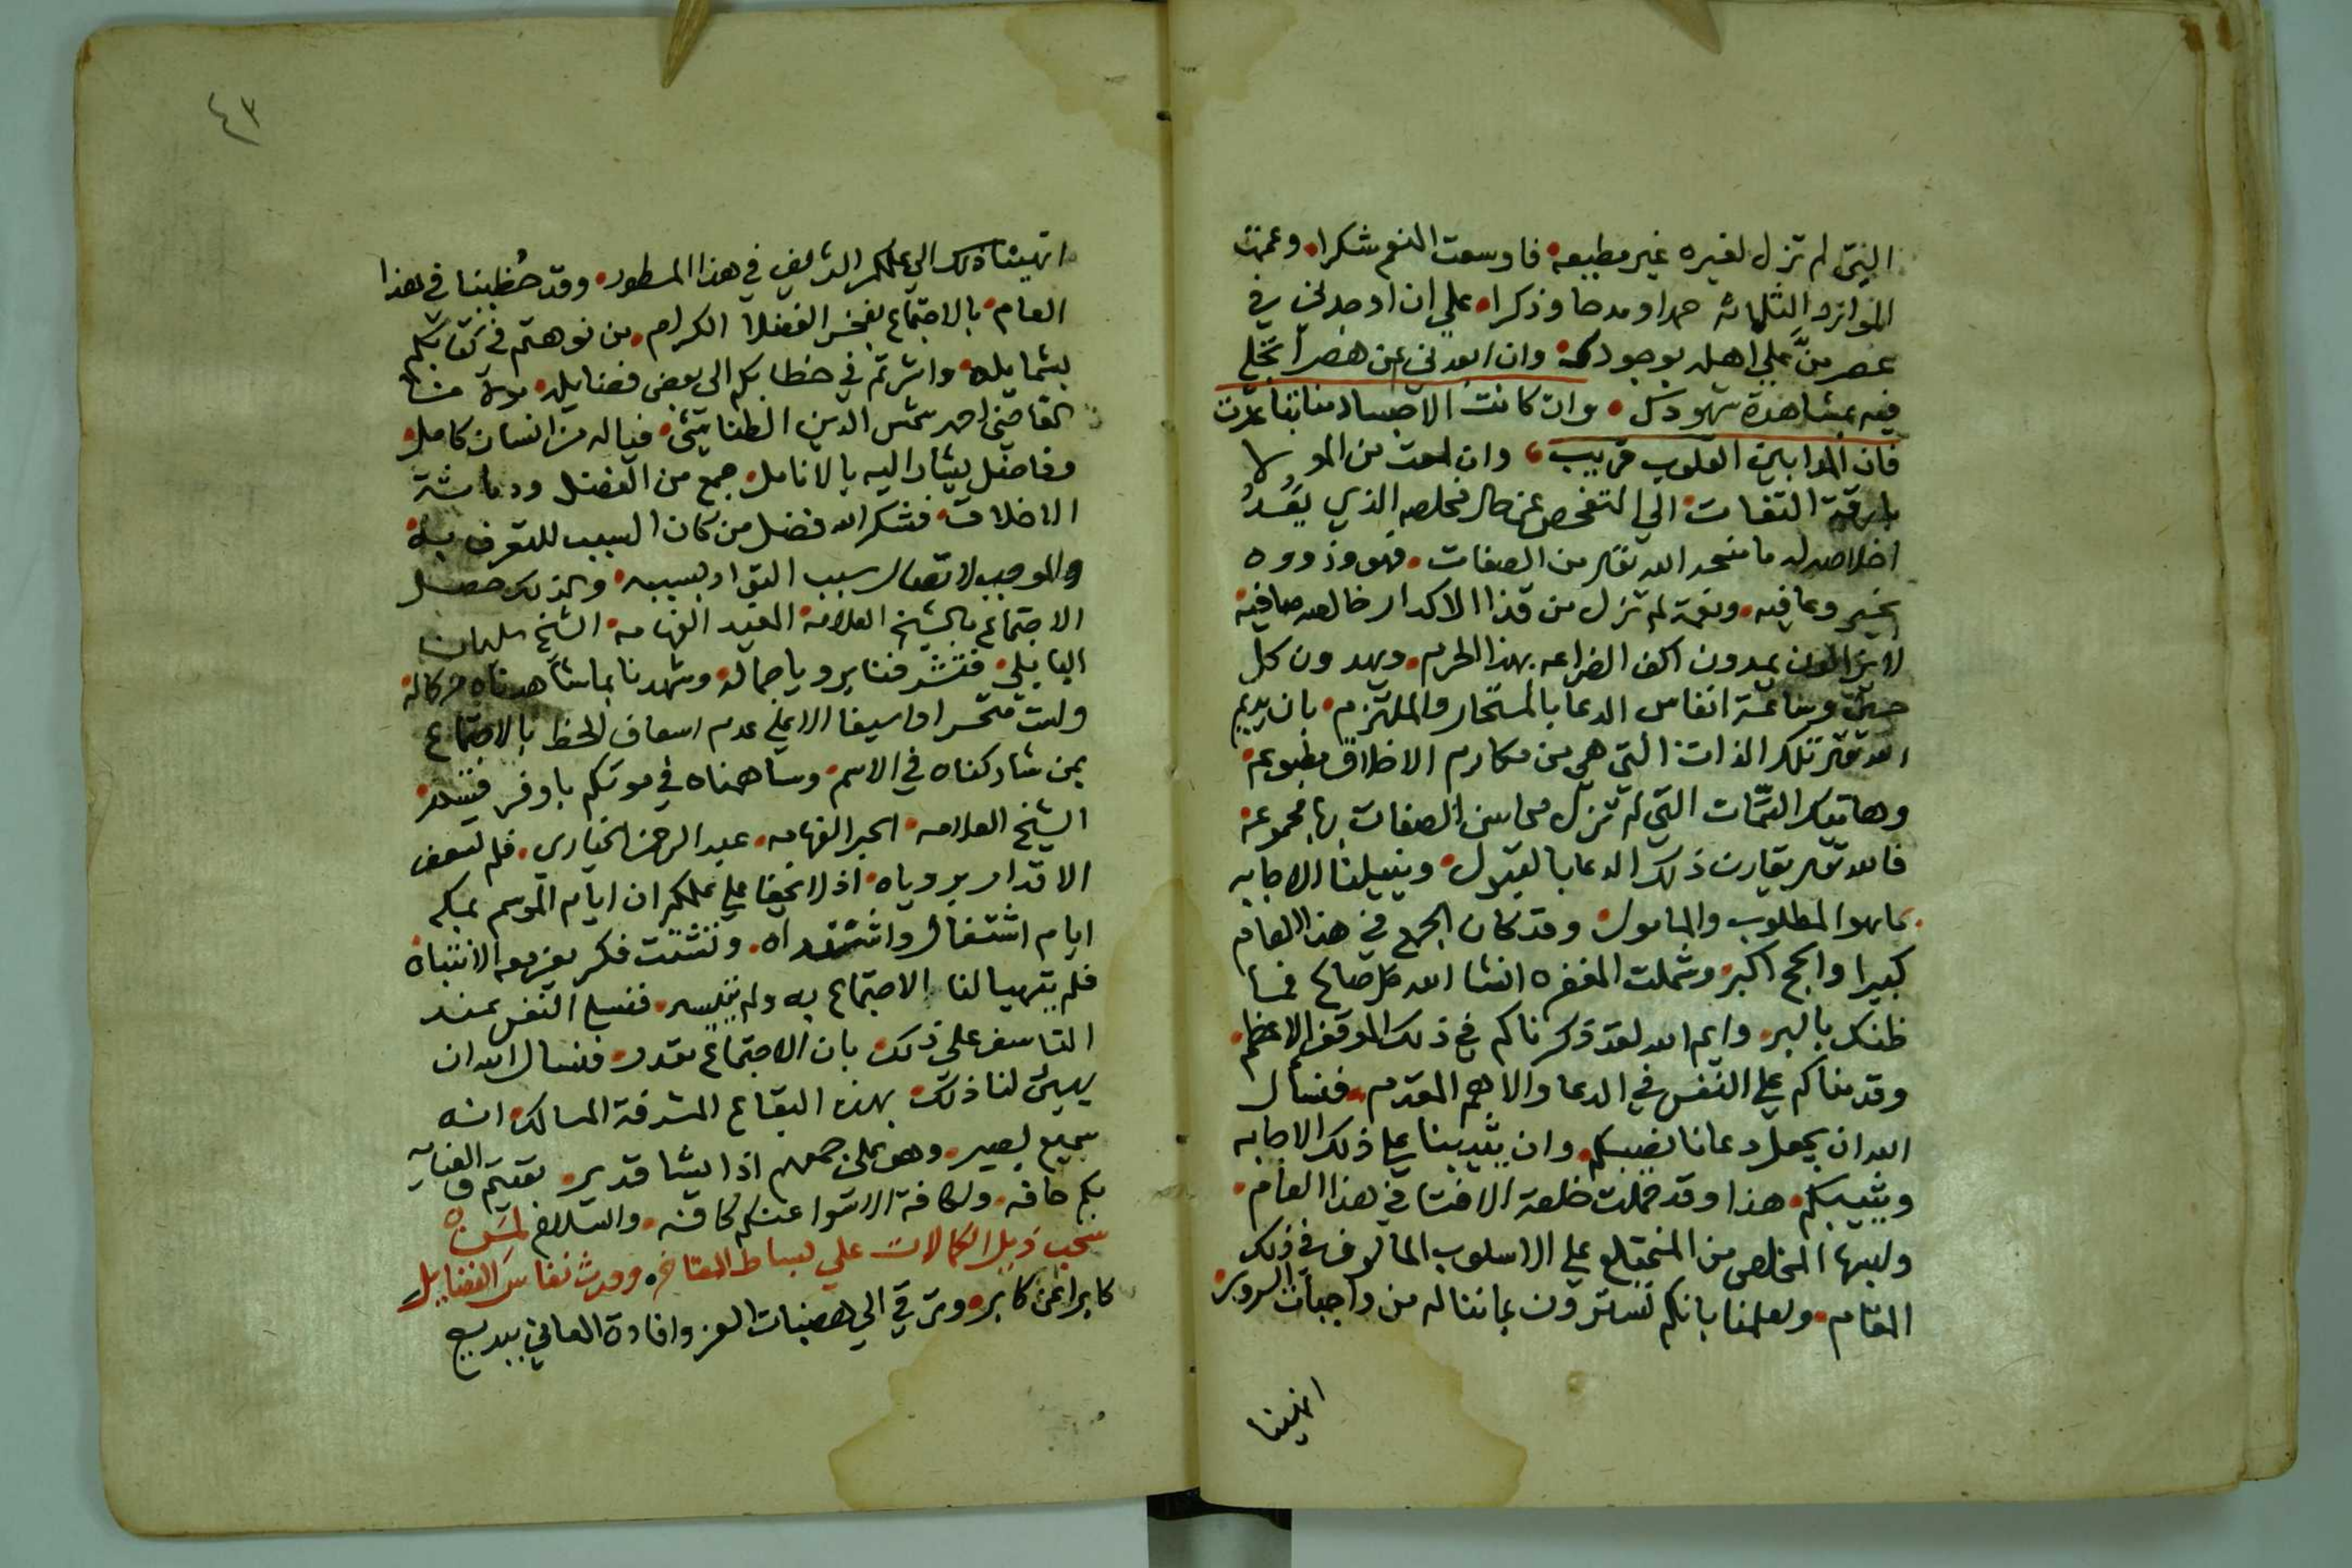 التي لم تزل لغيره غير مطيعه فاوسعت النعم شكرا وعمت
الموارد الثلاثه حمدا ومدحا وذكرا علي ان اوجدني في
عصر منّ علي اهله بوجودكم وان ابعدني عن هصر تجلي
فيه بمشاهدة شهودكم وان كانت الاجساد منا تباعدت
فان المدا بين القلوب قريب وان لمحت من المولا
بارقة التفات الي التفحص عن حال مخلصه الذي يَعُدُّ
اخلاصه له ما منحه الله تعالى من الصفات فهو وذووه
بخير وعافيه ونعمة لم تزل من قذا الاكدار خالصه صافية
لا يزالون يمدون اكف الضراعه بهذا الحرم ويهدون كل
حين وساعة انفاس الدعا بالمستجار والملتزم بان يديم
الله تعالى تلك الذات التي هي من مكارم الاخلاق مطبوعة
وهاتيك السمات التي لم تزل محاسن الصفات بها مجموعة
فالله تعالى يقارن ذلك الدعا بالقبول وينيلنا الاجابه
بما هو المطلوب والمامول وقد كان الجمع في هذا العام
كبيرا والحج اكبر وشملت المغفره انشا الله كل صالح فما
ظنك بالبر وايم الله لقد ذكرناكم في ذلك الموقف الاعظم
وقدمناكم علي النفس في الدعا والاهم المقدم فنسأل
الله ان يجعل دعانا نصيبكم وان يثيبنا علي ذلك الاجابه
ويثيبكم هذا وقد حملت خلعة الافتا في هذا العام
ولبسها المخلص من المنحني علي الاسلوب المالوف في ذلك
المقام ولعلمنا بانكم تسترون بما نناله من واجبات السرور
انهينا
٤٣
انهينا ذلك الي علمكم الشريف في هذا المسطور وقد حُظينا في هذا
العام بالاجتماع بفخر الفضلا الكرام من نوهتم في كتابكم
بشمايله واشرتم في خطابكم الى بعض فضايله مولانا
القاضي احمد شمس الدين فياله من انسان كامل
وفاضل يشار اليه بالانامل جمع من الفضل ودماثة
الاخلاق فشكر الله فضل من كان السبب للتعرف به
والموجب لاتصال سبب التواد بسببه وكذلك حصل
الاجتماع بالشيخ العلامة المفيد الفهامه الشيخ سلمان
البابلي فتشرفنا برويا جماله وشهدنا بما شاهدناه من كماله
ولست متحسرا ولا سيفا الا علي عدم اسعاف الحظ بالاجتماع
بمن شاركناه في الاسم وساهمناه في مودتكم باوفر قسم
الشيخ العلامه الحبر الفهامه عبد الرحمن الخياري فلم تسعف
الاقدار بروياه اذ لا يخفا علي علمكم ان ايام الموسم بمكه
ايام اشتغال واشتداه وتشتت فكر يعزمعه الانتباه
فلم يتهيا لنا الاجتماع به ولم يتيسر فنسلي النفس عند
التاسف علي ذلك بان الاجتماع مقدر فنسال الله ان
يهيئ لنا ذلك بهذه البقاع المشرفة المسالك انه
سميع بصير وهو على جمعهم اذا يشا قدير بقيتم والعنايه
بكم حافه ولكافة الاسوا عنكم كافه والسلام لمن
سحب ذيل الكمالات علي بساط المفاخر وورث نفايس الفضايل
كابرا عن كابر وترقي الي هضبات العز وافادة المعاني ببديع